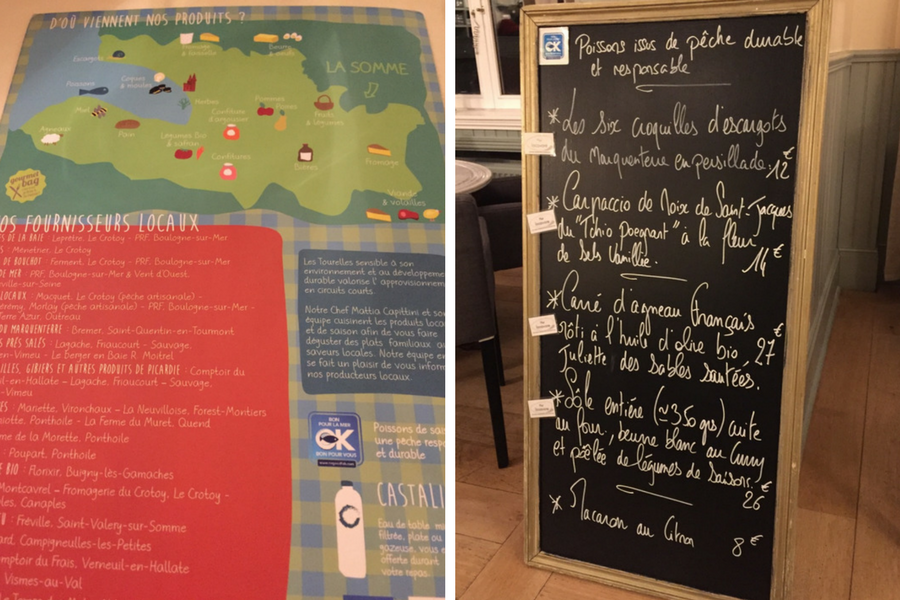 D'OÙ VIENNENT NOS PRODUITS ?
LA SOMME
Escargots
Coques
& moules
Poissons
Miel
Pain
Agneaux
Herbes
Légumes Bio
& safran
Confitures
Confitures
d'argousier
Pommes
& Poires
Fruits
& légumes
Bières
Fromage
Viande
& volailles
gourmet
bag
OS FOURNISSEURS LOCAUX
S DE LA BAIE : Leprêtre, Le Crotoy - PRF, Boulogne-sur-Mer
S : Menetrier, Le Crotoy
DE BOUCHOT : Ferment, Le Crotoy - PRF, Boulogne-sur-Mer
DE MER : PRF, Boulogne-sur-Mer & Vent d'Ouest,
ville-sur-Seine
LOCAUX : Macquet, Le Crotoy (pêche artisanale) -
érémy, Morlay (pêche artisanale) - PRF, Boulogne-sur-Mer -
Terre Azur, Outreau
DU MARQUENTERRE : Bremer, Saint-Quentin-en-Tourmont
S PRÉS SALÉS : Lagache, Friaucourt - Sauvage,
en-Vimeu - Le Berger en Baie R. Moitrel
ILLES, GIBIERS ET AUTRES PRODUITS DE PICARDIE : Comptoir du
il-en-Hallate - Lagache, Friaucourt - Sauvage,
-Vimeu
ES : Mariette, Vironchaux - La Neuvilloise, Forest-Montiers
siotte, Ponthoile - La Ferme du Muret, Quend
me de la Morette, Ponthoile
: Poupart, Ponthoile
E BIO : Florixir, Buigny-lès-Gamaches
Montcavrel - Fromagerie du Crotoy, Le Crotoy -
les, Canaples
U : Fréville, Saint-Valery-sur-Somme
ard, Campigneulles-les-Petites
omptoir du Frais, Verneuil-en-Hallate
Vismes-au-Val
Les Tourelles sensible à son
environnement et au développeme
durable valorise l'approvisionnem
en circuits courts.
Notre Chef Mattia Capittini et so
équipe cuisinent les produits loca
et de saison afin de vous faire
déguster des plats familiaux au
saveurs locales. Notre équipe en
se fait un plaisir de vous inform
nos producteurs locaux.
BON
POUR LA MER
OK
BON POUR VOUS
Poissons de sa
une pêche resp
et durable
CASTALI
Eau de table mi
filtrée, plate ou
gazeuse, vous e
offerte durant
votre repas.
OK
Poissons issus de pêche durable
et responsable
* Les six croquilles d'escargots
du Marquenterre en persillade. 12€
* Carpaccio de Noix de Saint-Jacques
du "Tchio Poegnant" à la fleur
de Sels Vanillée. 14€
* Carré d'agneau Français
rôti à l'huile d'olive bio 27€
Juliette des Sables sautées.
* Sole entière (~350 grs) cuite
au four, beurre blanc au Curry
et poêlée de légumes de Saison. 26€
* Macaron au Citron 8€